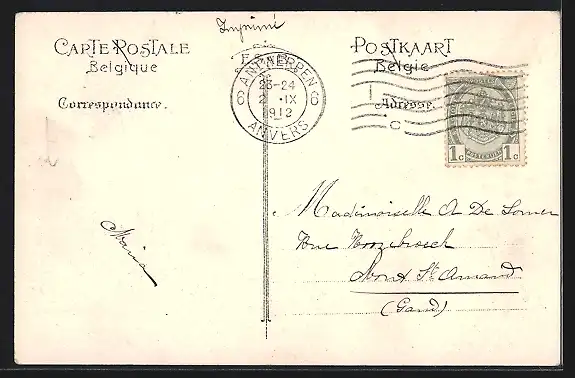 Imprimé
CARTE POSTALE
Belgique
Correspondance.
POSTKAART
Belgie
Adresse.
ANTWERPEN
6 23-24 6
2 IX
1912
ANVERS
1c 1c
Maria
Mademoiselle A De Somer
Rue
Mont St Amand
(Gand)